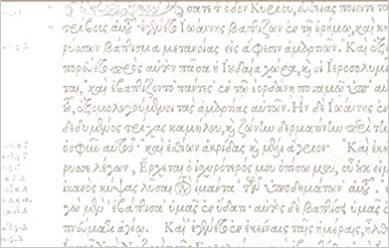 σατε τ̀ ὁδὸν Κυρίου, εὐθείας ποιεῖτε τὰς
τρίβους αὐτοῦ· ἐγένετο Ἰωάννης βαπτίζων ἐν τῇ ἐρήμῳ, καὶ κη
ρύσσων βάπτισμα μετανοίας εἰς ἄφεσιν ἁμαρτιῶν. Καὶ ἐξε
πορεύετο πρὸς αὐτὸν πᾶσα ἡ Ἰουδαία χώρα, κỳ οἱ Ἱεροσολυμῖ
ται, καὶ ἐβαπτίζοντο πάντες ἐν τῷ Ἰορδάνῃ ποταμῷ ὑπ' αὐ
τοῦ, ἐξομολογούμενοι τὰς ἁμαρτίας αὐτῶν. Ἦν δὲ Ἰωάννης ἐν
δεδυμένος τρίχας καμήλου, κỳ ζώνην δερματίνην περὶ τὴν
ὀσφὺν αὐτοῦ· καὶ ἐσθίων ἀκρίδας κỳ μέλι ἄγριον. Καὶ ἐκή
ρυσσε λέγων, Ἔρχεται ὁ ἰσχυρότερός μου ὀπίσω μου, οὗ οὐκ εἰμὶ
ἱκανὸς κύψας λῦσαι τὸν ἱμάντα τῶν ὑποδημάτων αὐτοῦ.
γὼ μὲν ἐβάπτισα ὑμᾶς ἐν ὕδατι· αὐτὸς δὲ βαπτίσει ὑμᾶς
πνεύματι ἁγίῳ. Καὶ ἐγένετο ἐν ἐκείναις ταῖς ἡμέραις, ἦλθεν